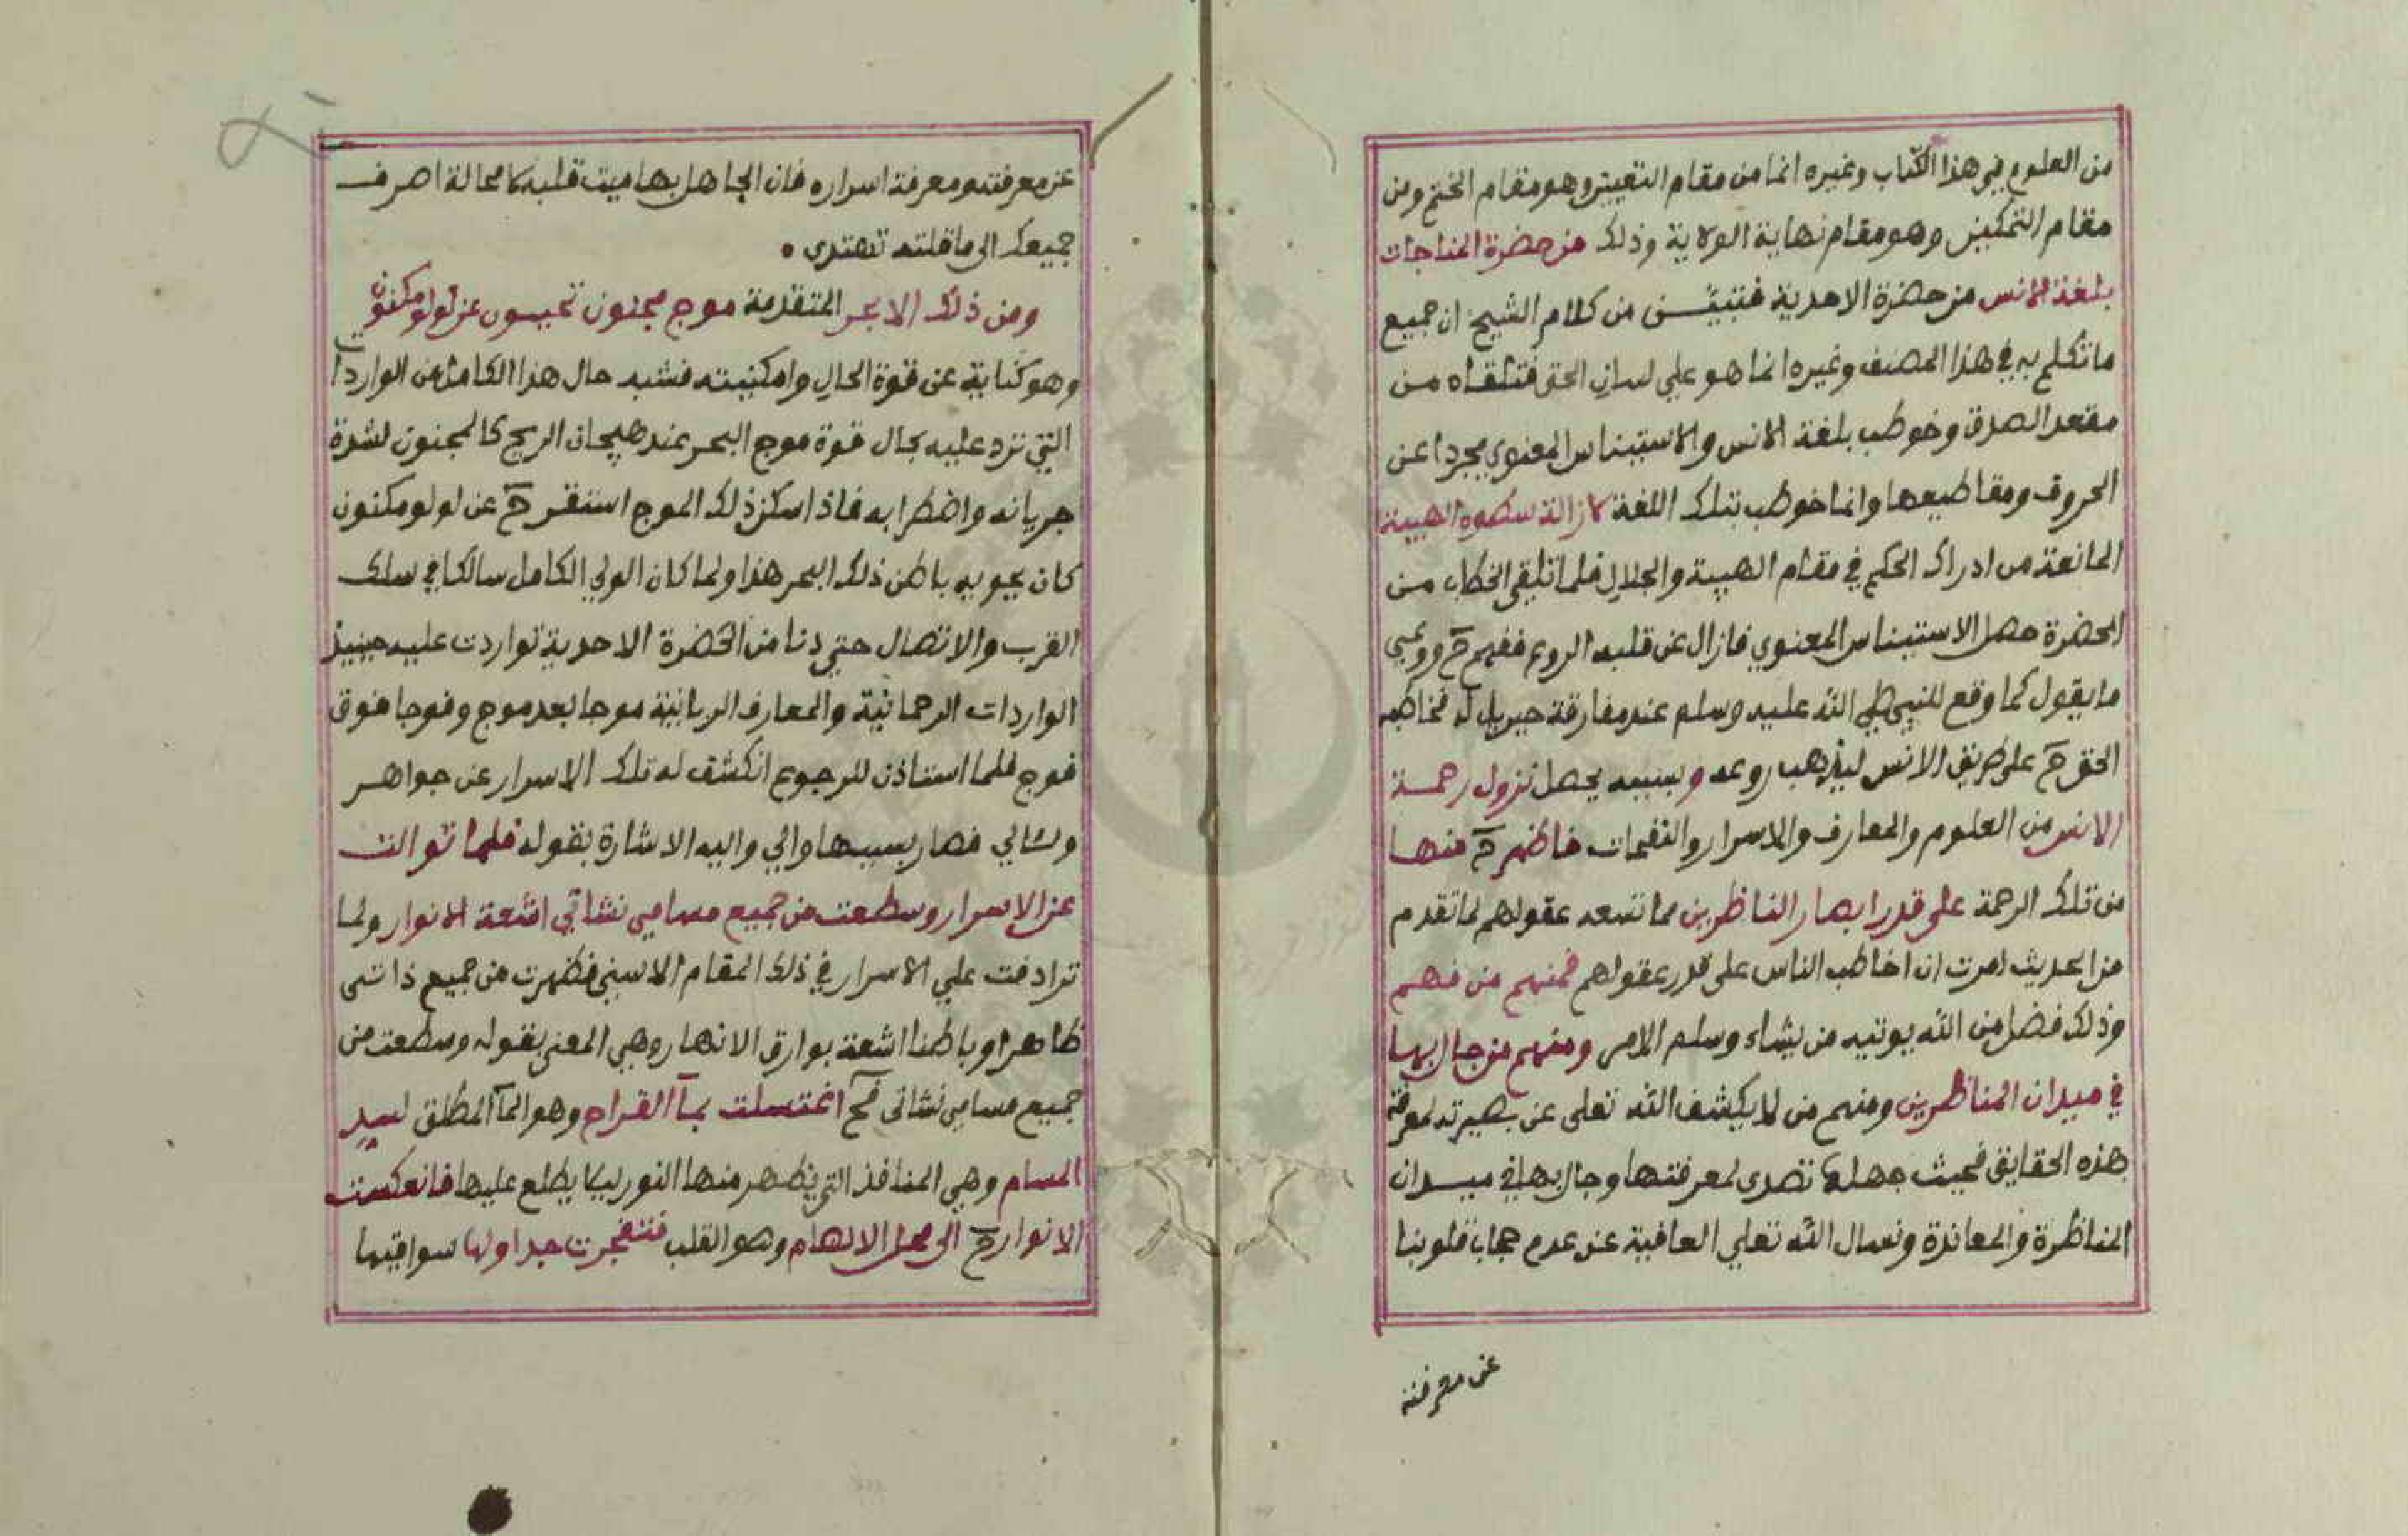 من العلوم في هذا الكتاب وغيره انما من مقام التعيين وهو مقام الختم ومن
مقام التمكين وهو مقام نهاية الولاية وذلك من حضرة المناجات
بلغة الانس من حضرة الاحدية فتبيّن من كلام الشيخ ان جميع
ما تكلم به في هذا المصنف وغيره انما هو علي لسان الحق فتلقاه من
مقعد الصدق وخوطب بلغة الانس والاستيناس المعنوي مجردا عن
الحروف ومقاطيعها وانما خوطب بتلك اللغة لازالة سطوه الهيبة
المانعة من ادراك الحكم في مقام الهيبة والجلال فلما تلقي الخطاب من
الحضرة حصل الاستيناس المعنوي فازال عن قلبه الروع ففهم ح ووعي
ما يقول كما وقع للنبي صلي الله عليه وسلم عند مفارقة جبريل له فخاطبه
الحق ح على طريق الانس ليذهب روعه وبسببه يحصل نزول رحمة
الانس من العلوم والمعارف والاسرار والنفحات فاظهر ح منها
من تلك الرحمة على قدر ابصار الناظرين مما تسعه عقولهم لما تقدم
من الحديث امرت ان اخاطب الناس على قدر عقولهم فمنهم من فهم
وذلك فضل من الله يوتيه من يشاء وسلم الامر ومنهم من جال بها
في ميدان المناظرين ومنهم من لا يكشف الله تعلى عن بصيرته لمعرفة
هذه الحقايق فحيث جهلها تصدى لمعرفتها وجال بها في ميدان
المناظرة والمعاندة ونسال الله تعلي العافية عن عدم حجاب قلوبنا
عن معرفته
عن معرفته ومعرفة اسراره فان الجاهل بها ميت قلبه لا محالة اصرف
جميعك الى ما قلته تهتدى
ومن ذلك الابحر المتقدمة موج مجنون تحبسون عن لولو مكنون
وهو كناية عن قوة الحال وامكنيته فشبه حال هذا الكامل من الواردات
التي ترد عليه بحال قوة موج البحر عند هيجان الريح كالمجنون لشدة
جريانه واضطرابه فاذا سكن ذلك الموج استقر ح عن لولو مكنون
كان يحويه باطن ذلك البحر هذا ولما كان الولي الكامل سالكا في سلك
القرب والاتصال حتي دنا من الحضرة الاحدية تواردت عليه حينيذ
الواردات الرحمانية والمعارف الربانية موجا بعد موج وفوجا فوق
فوج فلما استاذن للرجوع انكشف له تلك الاسرار عن جواهر
ولئالي فصار بسببها والي واليه الاشارة بقوله فلما توالت
عن الاسرار وسطعت من جميع مسامي نشاتي اشعة الانوار ولما
ترادفت علي الاسرار في ذلك المقام الاسني فظهرت من جميع ذاتى
ظاهرا وباطنا اشعة بوارق الانهار وهي المعنى بقوله وسطعت من
جميع مسامي نشاتى فح اغتسلت بمآ القراح وهو المآ المطلق لسد
المسام وهي المنافذ التي يظهر منها النور ليلا يطلع عليها فانعكست
الانوار ح الى محل الالهام وهو القلب فتفجرت جداولها سواقيها